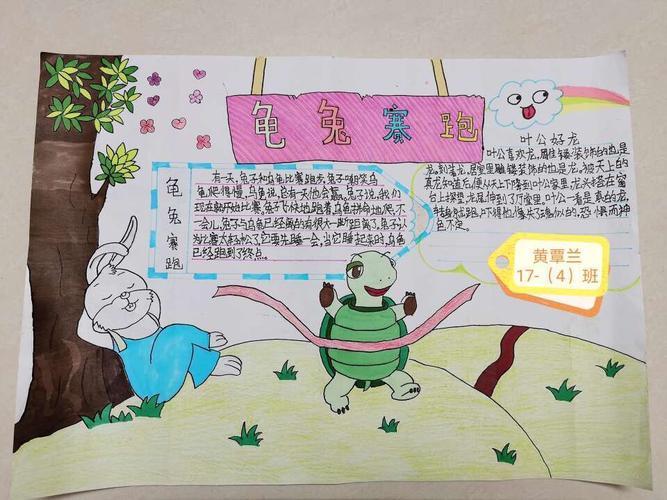 龟兔寨跑
龟兔寨跑
有一天,兔子和乌龟比赛跑步,兔子嘲笑乌
龟爬得慢,乌龟说,总有一天他会赢。兔子说,我们
现在就开始比赛,兔子飞快地跑着,乌龟拼命地爬,不
一会儿,兔子与乌龟已经离的有很大一断距离了,兔子认
为比赛太轻松了,它要先睡一会,当它醒起来时,乌龟
已经跑到了终点。
叶公好龙
叶公喜欢龙,雕镂装饰的也是
龙,被天上的
真龙知道后,便从天上下降到叶公家里,龙头搭在窗
台上探望,龙尾伸到了厅堂里,叶公一看是真的龙,
恐惧而神
色不定。
黄覃兰
17-(4)班